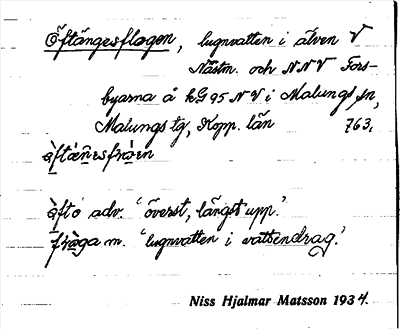 Öftängesflagen, lugnvatten i älven V
Nästm. och NNV Fors-
byarna å kG 95 NV i Malungs sn,
Malungs tg, Kopp. län 763.
åfto adv. 'överst, längst upp.'
fråga m. 'lugnvatten i vattendrag.'
Niss Hjalmar Matsson 1934.